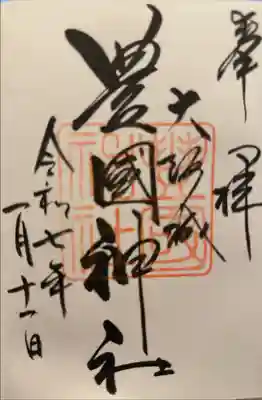 奉拝
大坂城
豊國神社
令和七年
一月十一日